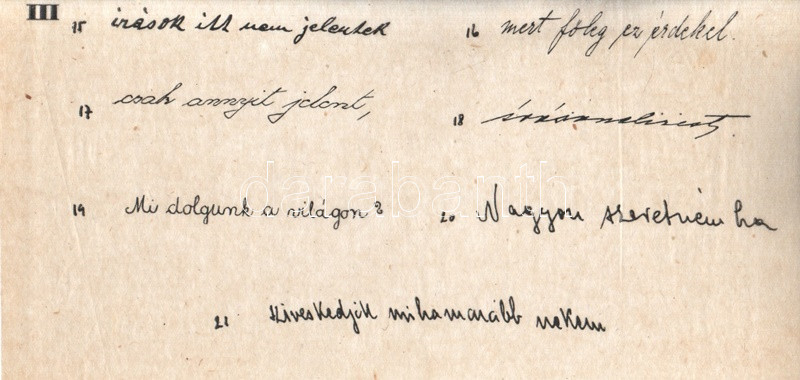 III
15 irások itt nem jelentek
16 mert főleg ez érdekel.
17 csak annyit jelent,
18 írásanalízist
19 Mi dolgunk a világon?
20 Nagyon szeretném ha
21 sziveskedjék mihamarább nekem
darabanth